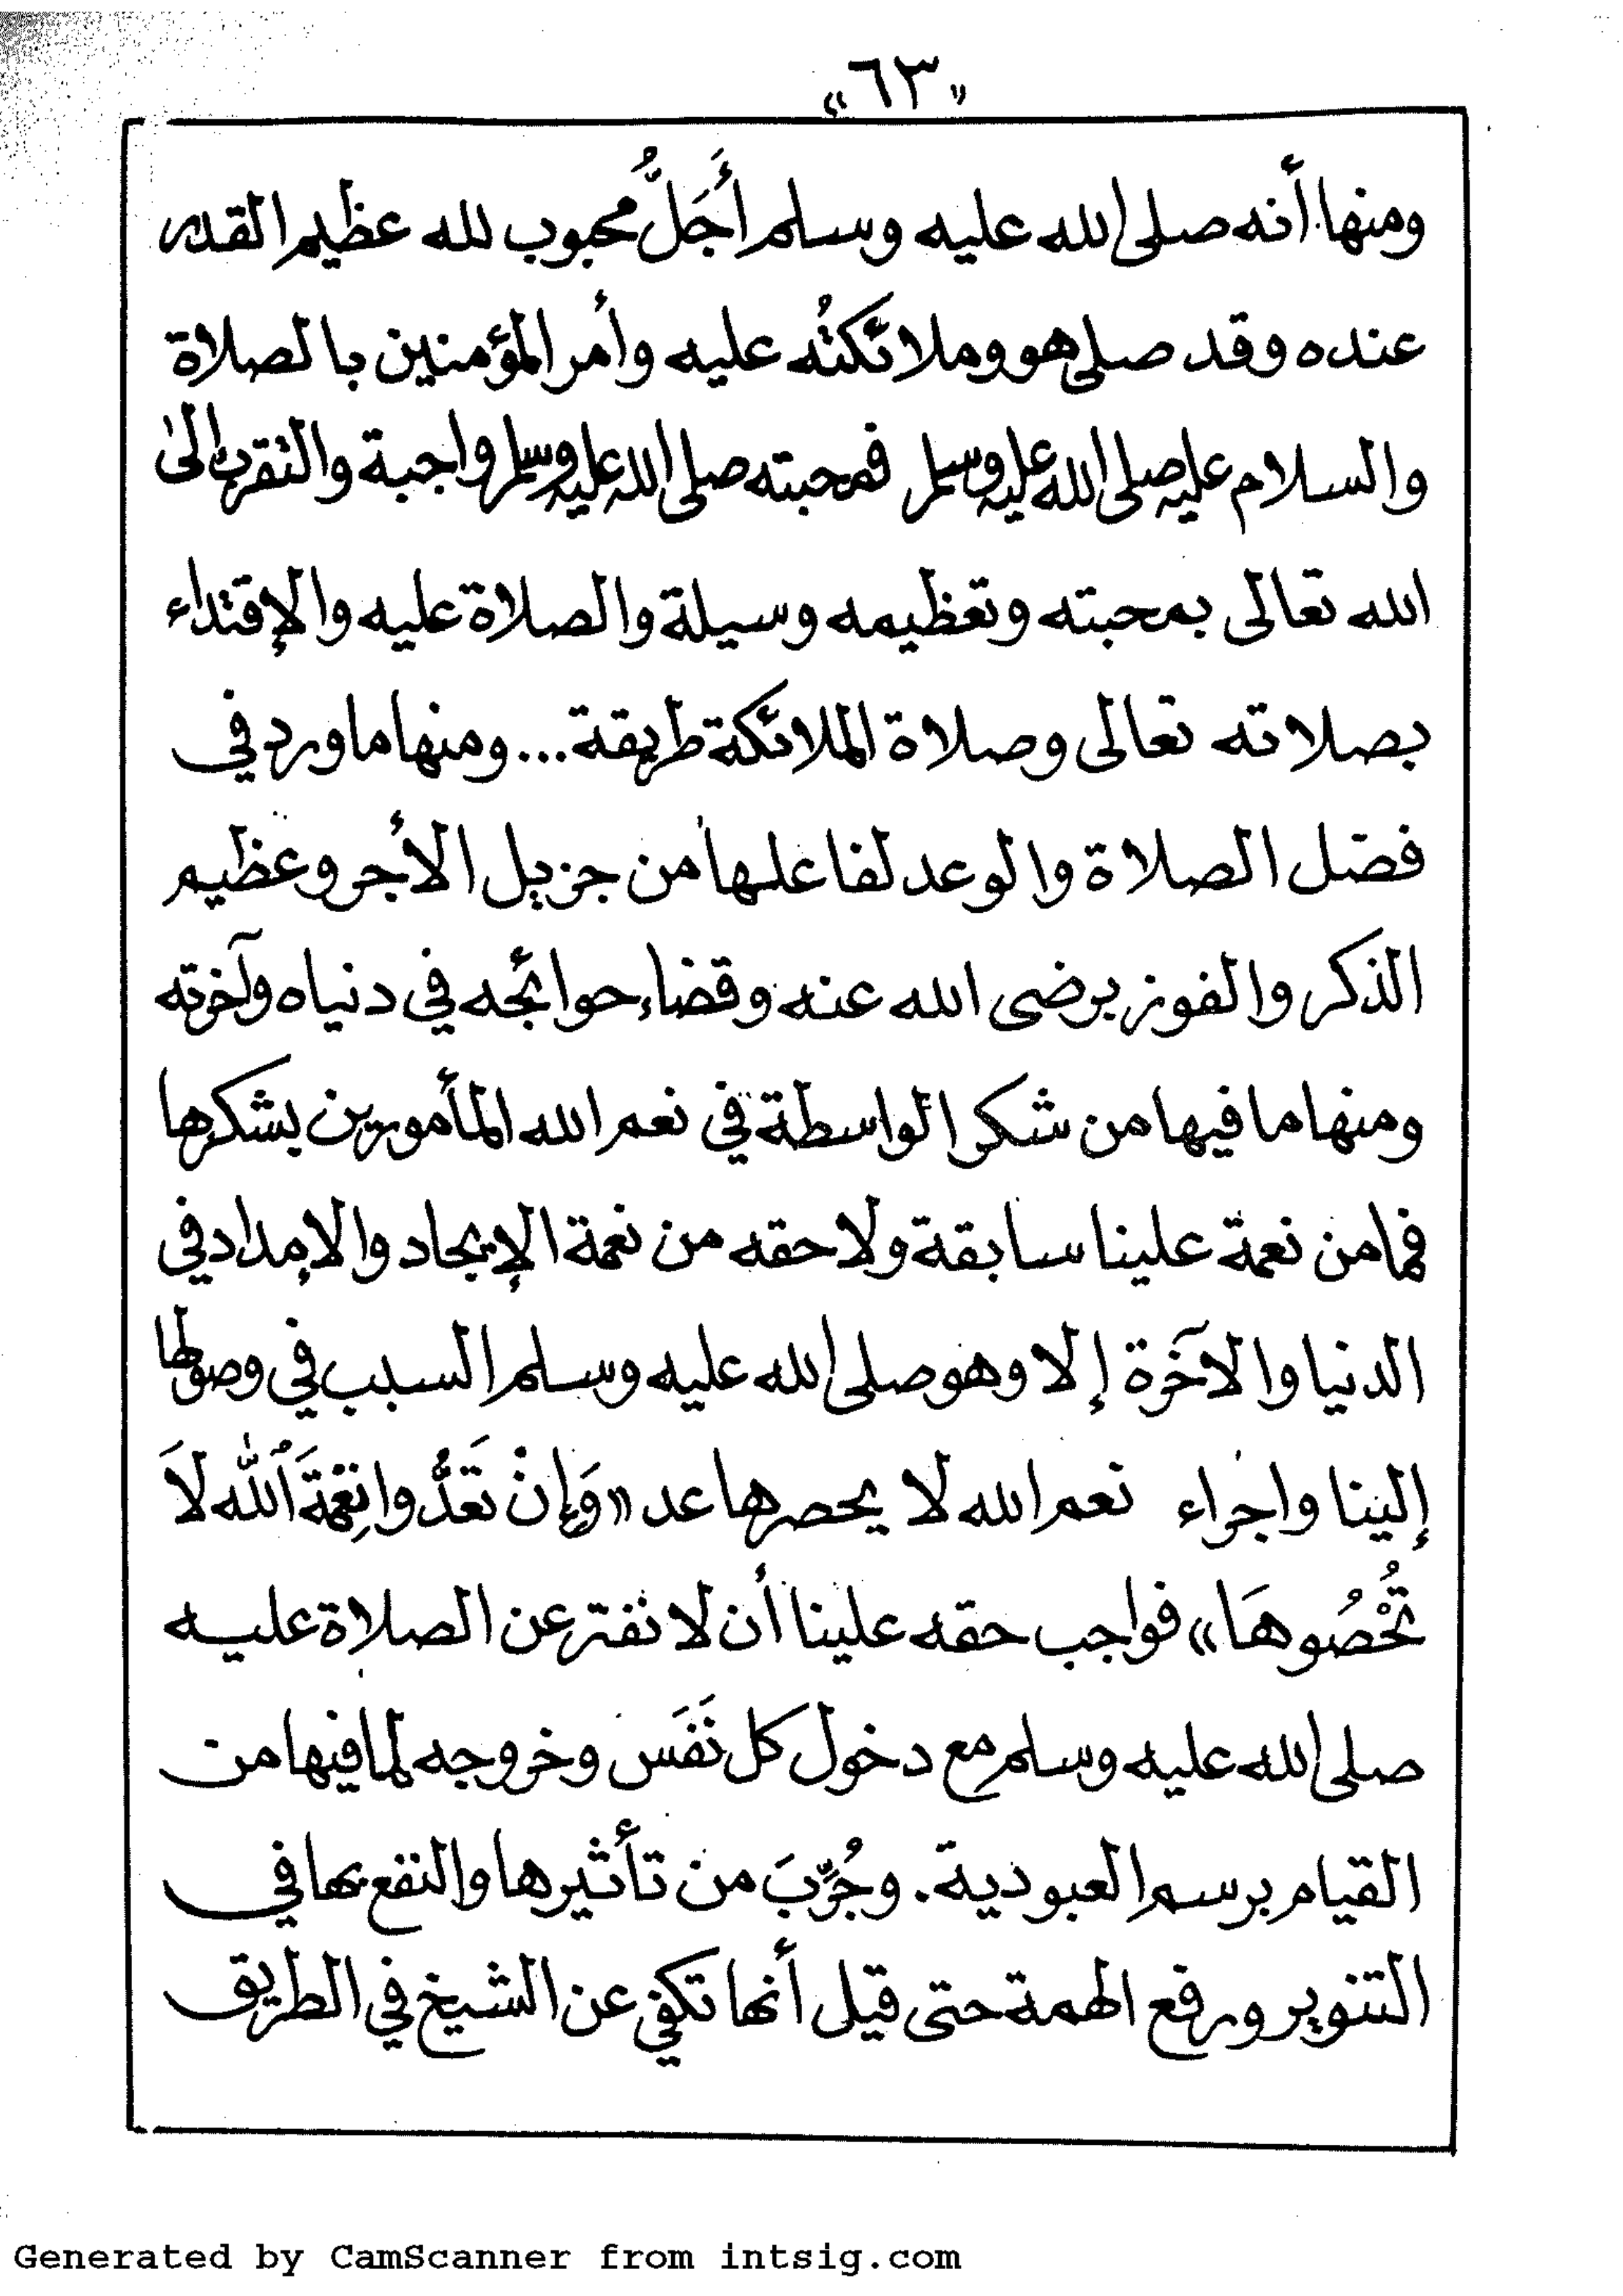 «٦٣»
ومنها أنه صلى الله عليه وسلم أَجَلُّ محبوب لله عظيم القدر
عنده وقد صلى هو وملائكتُه عليه وأمر المؤمنين بالصلاة
والسلام عليه صلى الله عليه وسلم فمحبته صلى الله عليه وسلم واجبة والتقرب إلى
الله تعالى بمحبته وتعظيمه وسيلة والصلاة عليه والإقتداء
بصلاته تعالى وصلاة الملائكة طريقة... ومنها ما ورد في
فضل الصلاة والوعد لفاعلها من جزيل الأجر وعظيم
الذكر والفوز برضى الله عنه وقضاء حوائجه في دنياه وآخرته
ومنها ما فيها من شكر الواسطة في نعم الله المأمورين بشكرها
فما من نعمة علينا سابقة ولاحقه من نعمة الإيجاد والإمداد في
الدنيا والآخرة إلا وهو صلى الله عليه وسلم السبب في وصولها
إلينا واجراء نعم الله لا يحصرها عد «وَإِنْ تَعُدُّوا نِعْمَةَ ٱللَّه لاَ
تُحْصُوهَا» فواجب حقه علينا أن لا نفتر عن الصلاة عليه
صلى الله عليه وسلم مع دخول كل نَفَس وخروجه لما فيها من
القيام برسم العبودية. وجُرِّبَ من تأثيرها والنفع بها في
التنوير ورفع الهمة حتى قيل أنها تكفي عن الشيخ في الطريق
Generated by CamScanner from intsig.com